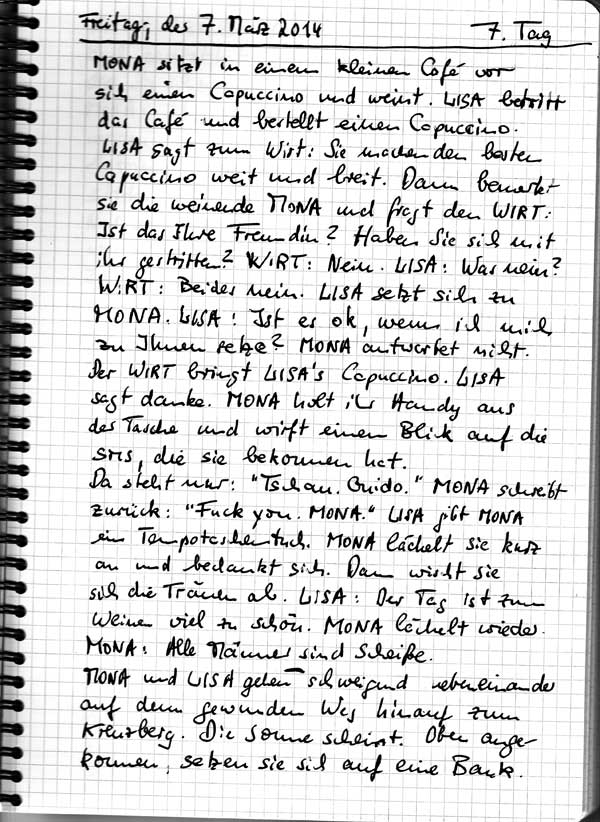 Freitag, des 7. März 2014 7. Tag
MONA sitzt in einem kleinen Café vor
sich einen Capuccino und weint. LISA betritt
das Café und bestellt einen Capuccino.
LISA sagt zum Wirt: Sie machen den besten
Capuccino weit und breit. Dann bemerkt
sie die weinende MONA und fragt den WIRT:
Ist das Ihre Freundin? Haben Sie sich mit
ihr gestritten? WIRT: Nein. LISA: Was nein?
WIRT: Beides nein. LISA setzt sich zu
MONA. LISA: Ist es ok, wenn ich mich
zu Ihnen setze? MONA antwortet nicht.
Der WIRT bringt LISA's Capuccino. LISA
sagt danke. MONA holt ihr Handy aus
der Tasche und wirft einen Blick auf die
SMS, die sie bekommen hat.
Da steht nur: "Tschau. Guido." MONA schreibt
zurück: "Fuck you. MONA." LISA gibt MONA
ein Tempotaschentuch. MONA lächelt sie kurz
an und bedankt sich. Dann wischt sie
sich die Tränen ab. LISA: Der Tag ist zum
Weinen viel zu schön. MONA lächelt wieder.
MONA: Alle Männer sind Scheiße.
MONA und LISA gehen schweigend nebeneinander
auf dem gewunden Weg hinauf zum
Kreuzberg. Die Sonne scheint. Oben ange-
kommen, setzen sie sich auf eine Bank.